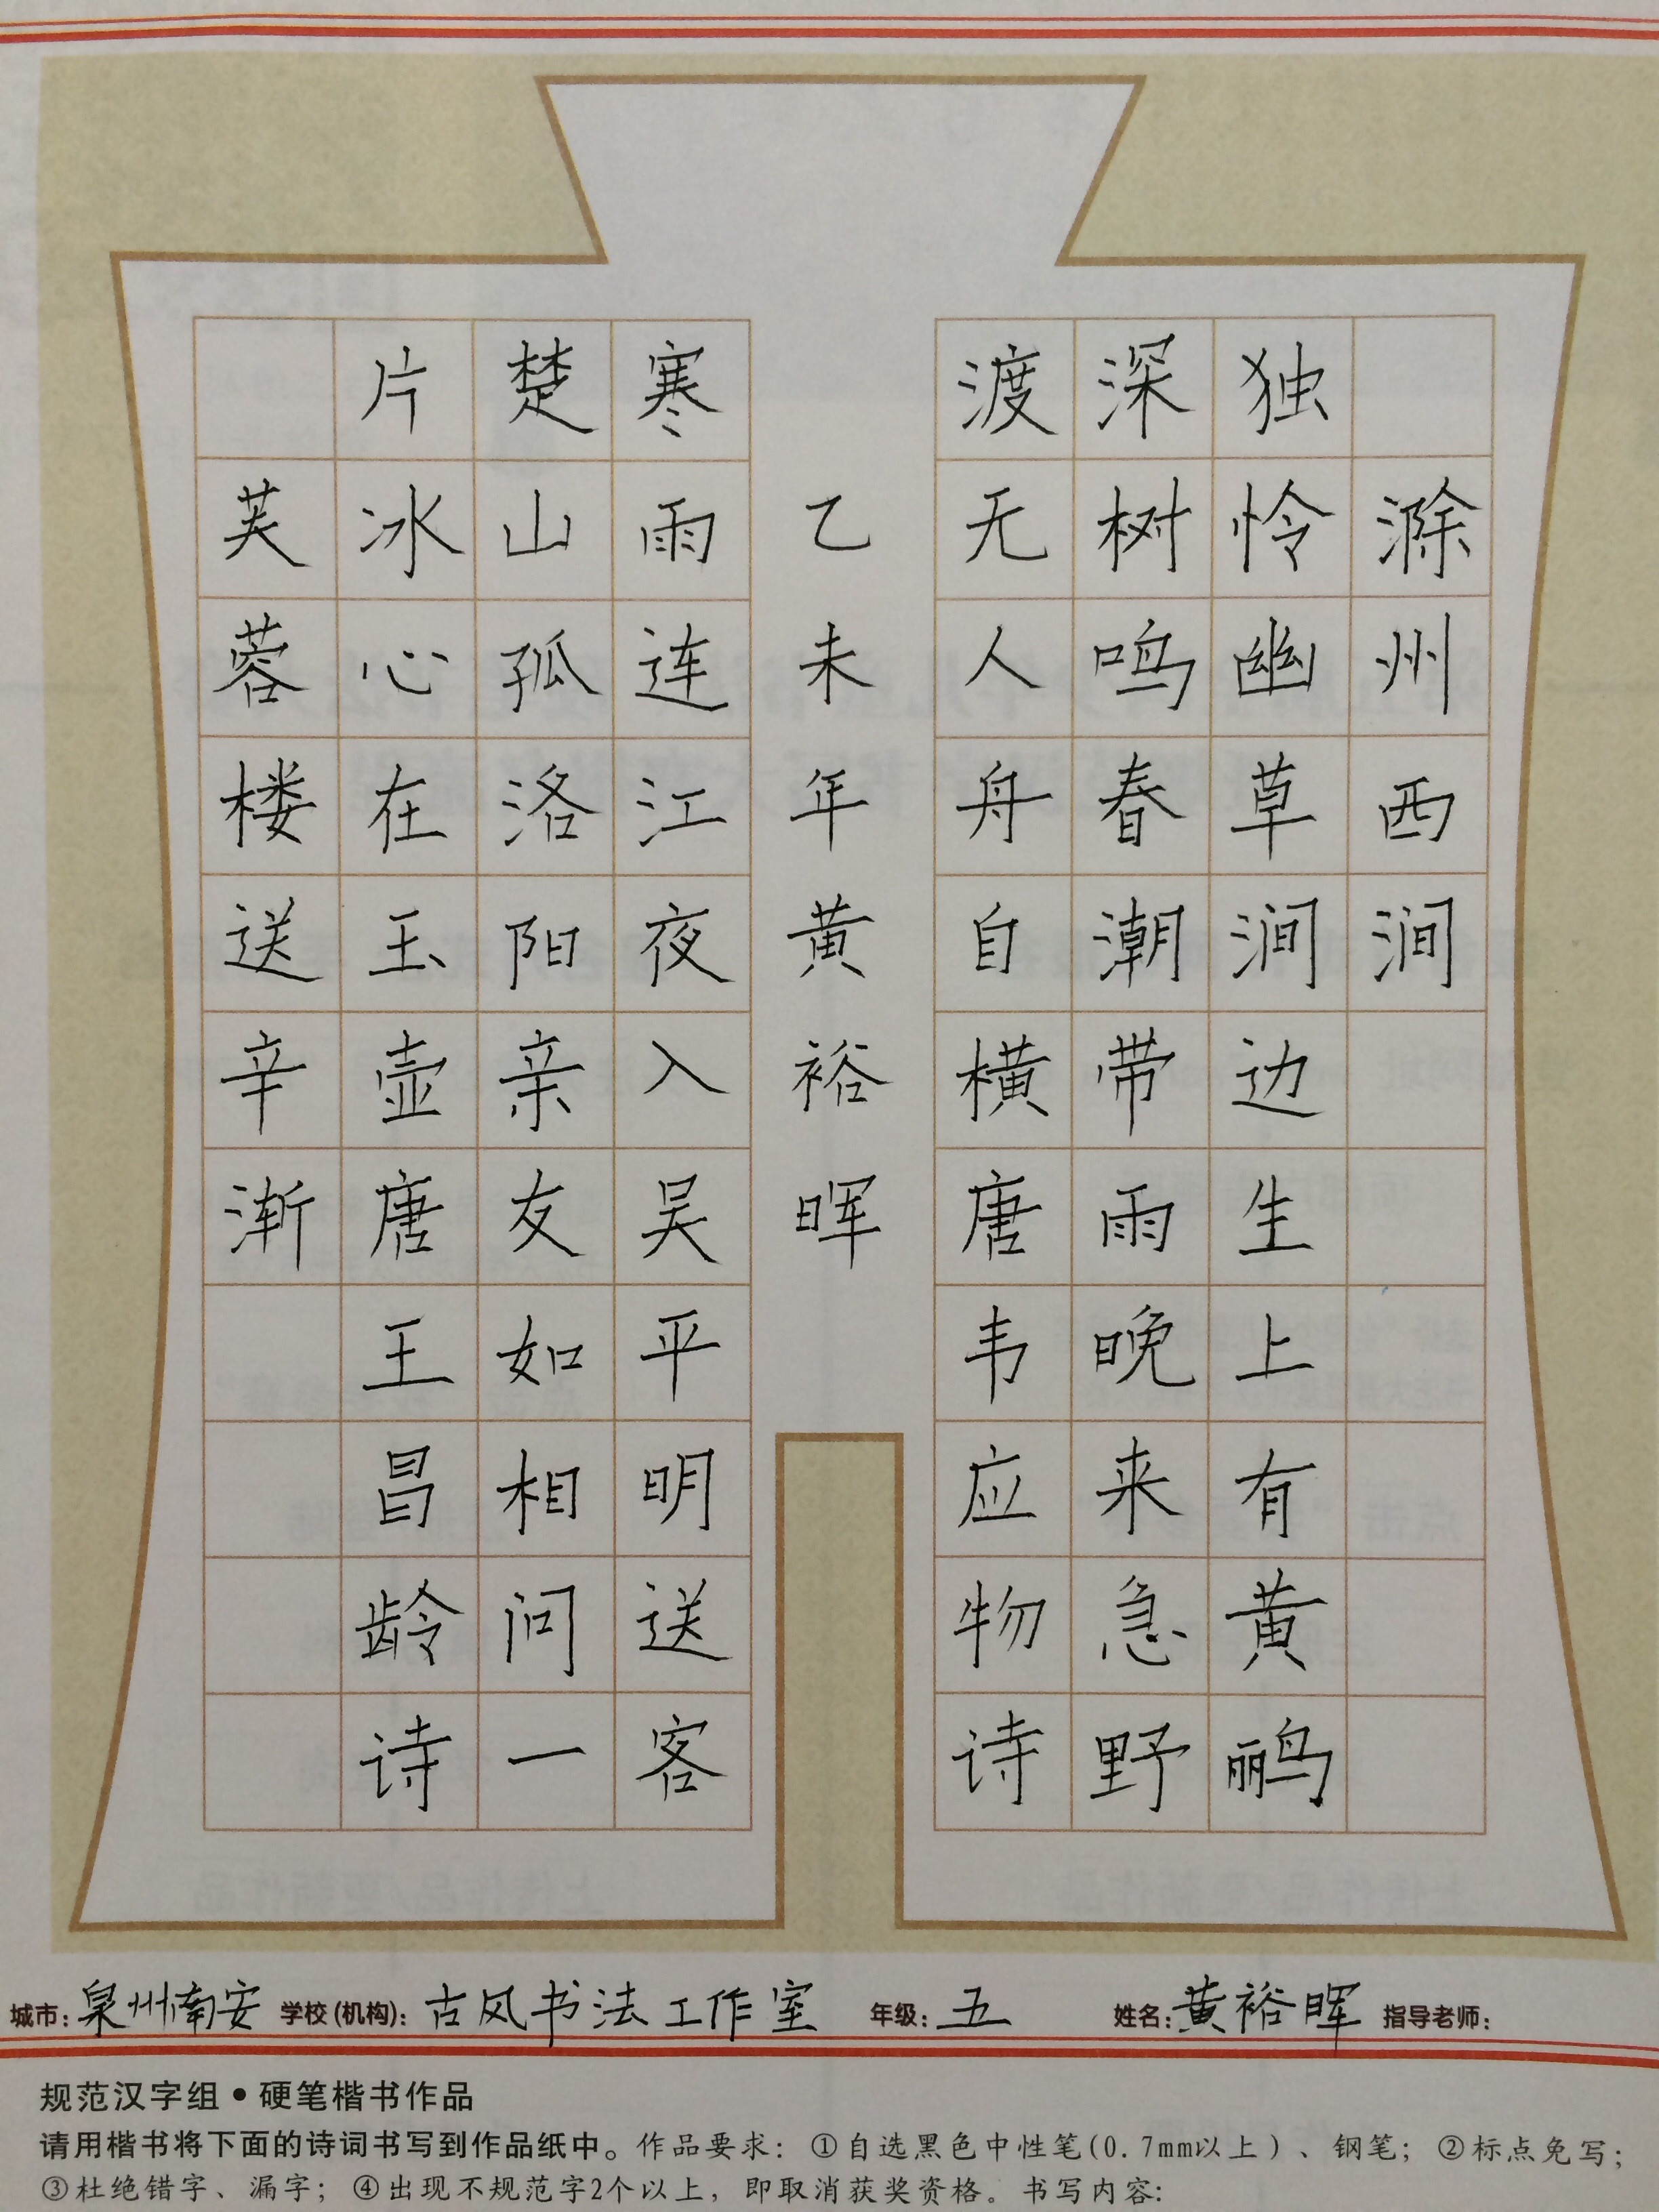 滁州西涧
独怜幽草涧边生上有黄鹂
深树鸣春潮带雨晚来急野
渡无人舟自横唐韦应物诗
乙未年黄裕晖
寒雨连江夜入吴平明送客
楚山孤洛阳亲友如相问一
片冰心在玉壶唐王昌龄诗
芙蓉楼送辛渐
城市：泉州南安 学校(机构)：古风书法工作室 年级：五 姓名：黄裕晖 指导老师：
规范汉字组•硬笔楷书作品
请用楷书将下面的诗词书写到作品纸中。作品要求：①自选黑色中性笔(0.7mm以上)、钢笔；②标点免写；
③杜绝错字、漏字；④出现不规范字2个以上，即取消获奖资格。书写内容：